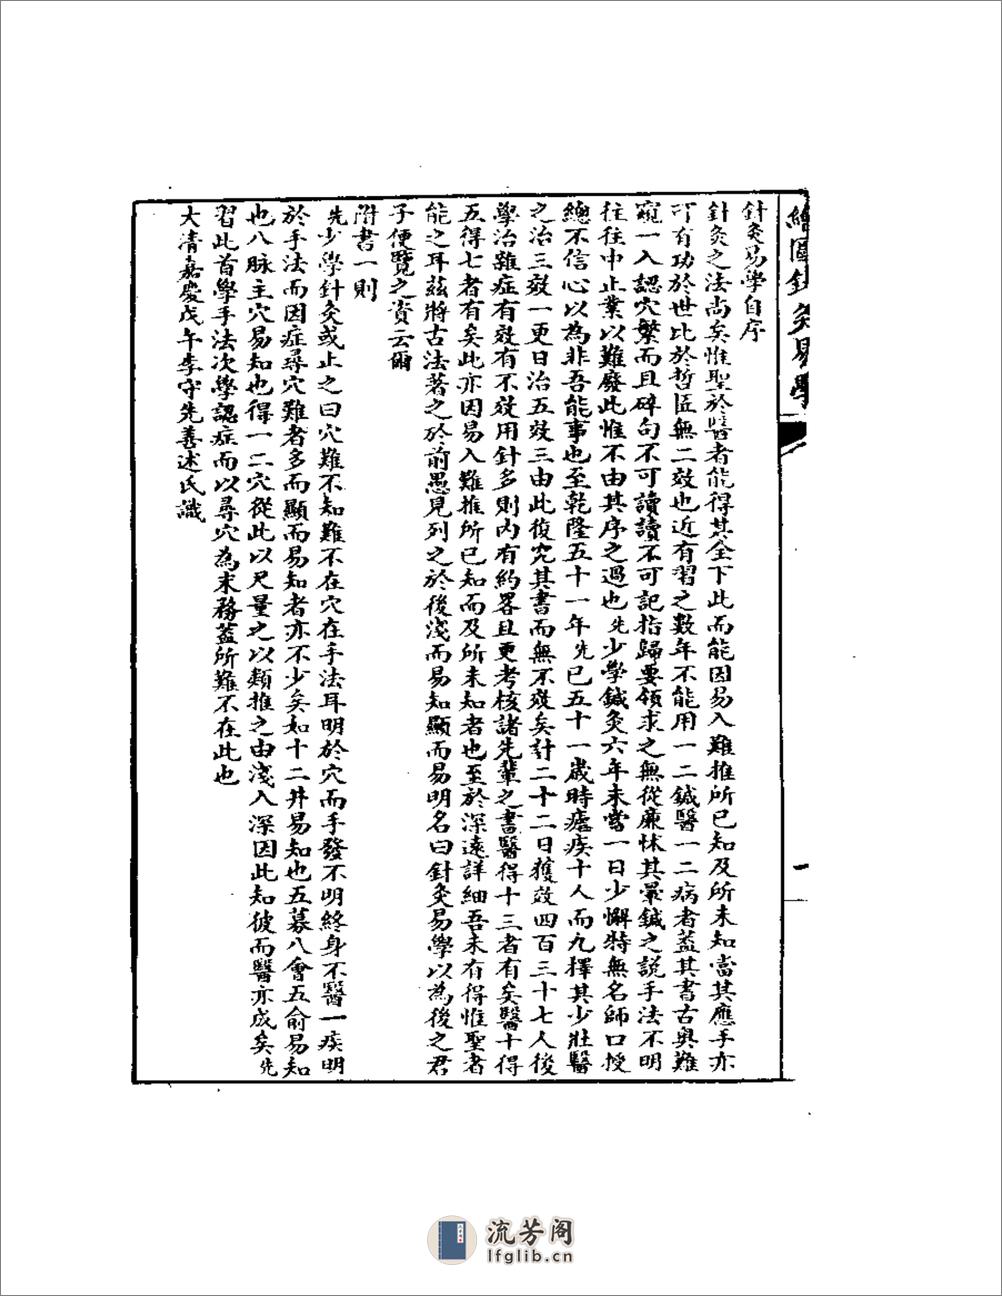 繪圖針灸易學
一
針灸易學自序
針灸之法尚矣惟聖於醫者能得其全下此而能因易入難推所已知及所未知當其應手亦
可有功於世比於哲匠無二效也近有習之數年不能用一二鍼醫一二病者蓋其書古奧難
窺一入認穴繁而且碎句不可讀讀不可記指歸要領求之無從兼怵其暈鍼之說手法不明
往往中止業以難廢此惟不由其序之過也先少學鍼灸六年未嘗一日少懈特無名師口授
總不信心以為非吾能事也至乾隆五十一年先已五十一歲時瘧疾十人而九擇其少壯醫
之治三效一更日治五效三由此復究其書而無不效矣計二十二日獲效四百三十七人後
學治雜症有效有不效用針多則內有約畧且更考核諸先輩之書醫得十三者有矣醫十得
五得七者有矣此亦因易入難推所已知而及所未知者也至於深遠詳細吾未有得惟聖者
能之耳茲將古法著之於前愚見列之於後淺而易知顯而易明名曰針灸易學以為後之君
子便覽之資云爾
附書一則
先少學針灸或止之曰穴難不知難不在穴在手法耳明於穴而手發不明終身不醫一疾明
於手法而因症尋穴難者多而顯而易知者亦不少矣如十二井易知也五募八會五俞易知
也八脉主穴易知也得一二穴從此以尺量之以類推之由淺入深因此知彼而醫亦成矣先
習此首學手法次學認症而以尋穴為末務蓋所難不在此也
大清嘉慶戊午李守先善述氏識
流芳阁
lfglib.cn